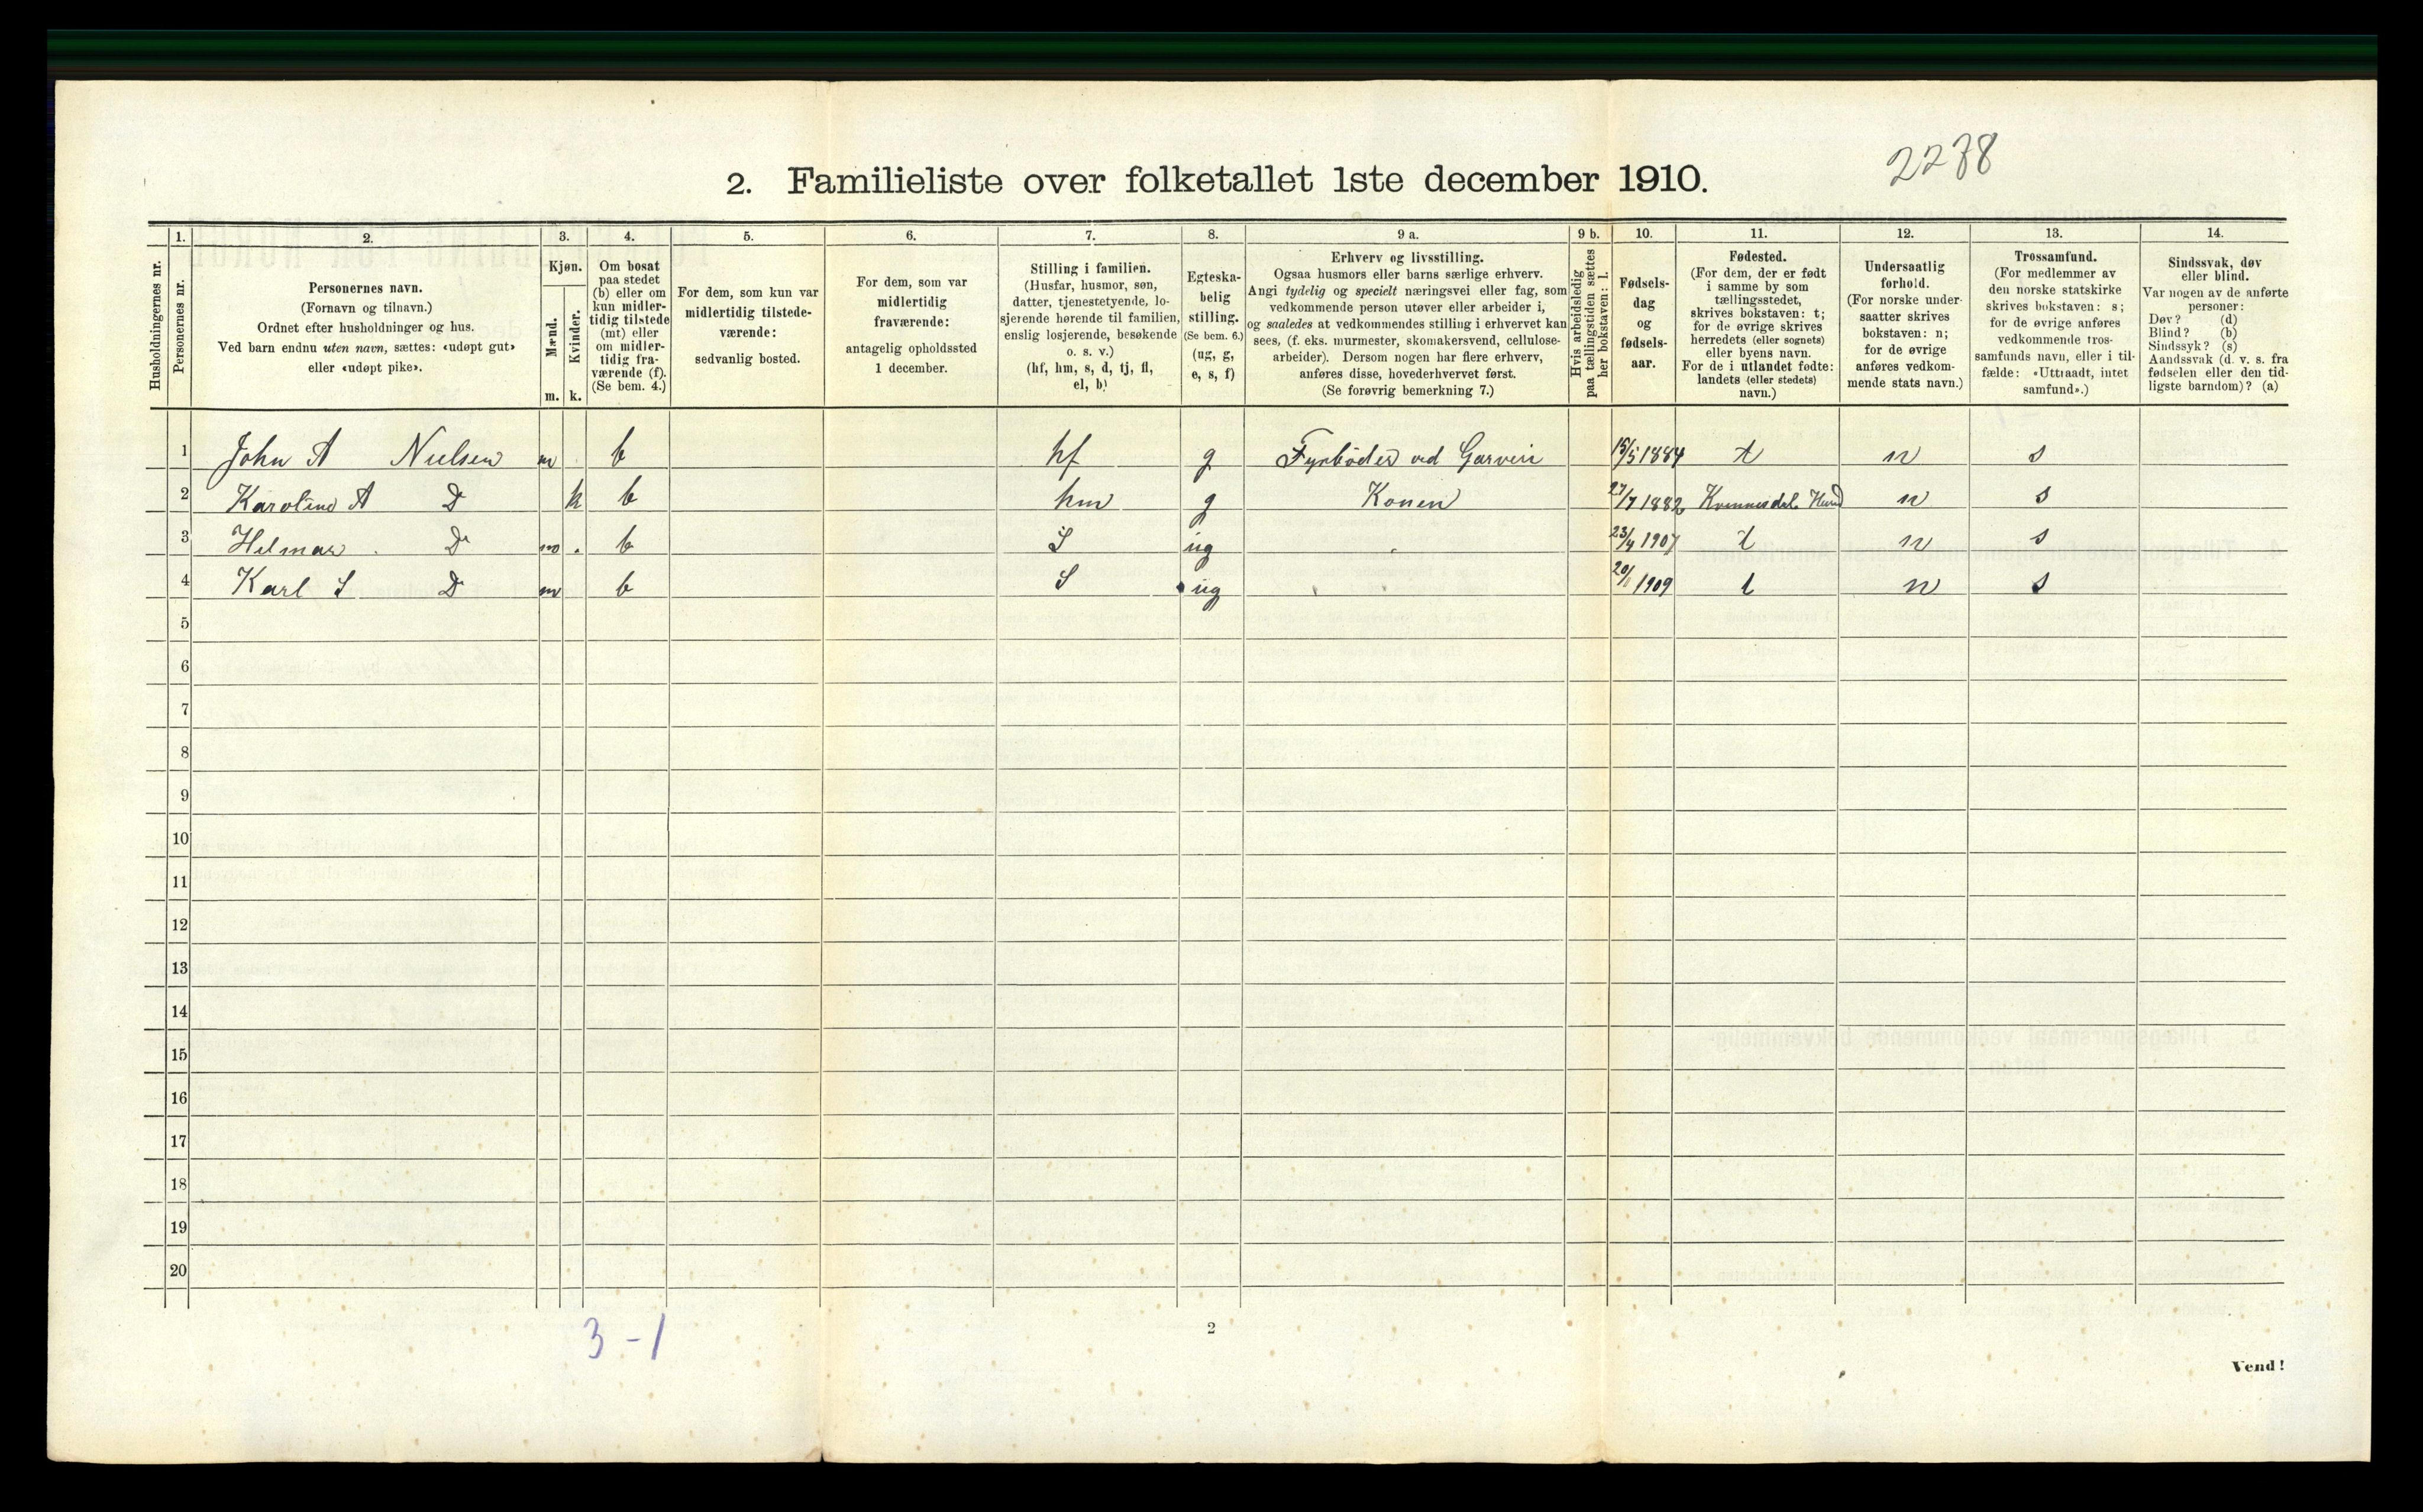 2278
2. Familieliste over folketallet 1ste december 1910.
Husholdningernes nr.
1.
Personernes nr.
2.
Personernes navn.
(Fornavn og tilnavn.)
Ordnet efter husholdninger og hus.
Ved barn endnu uten navn, sættes: «udøpt gut»
eller «udøpt pike».
3.
Kjøn.
Mænd.
Kvinder.
m. k.
4.
Om bosat
paa stedet
(b) eller om
kun midler-
tidig tilstede
(mt) eller
om midler-
tidig fra-
værende (f).
(Se bem. 4.)
5.
For dem, som kun var
midlertidig tilstede-
værende:
sedvanlig bosted.
6.
For dem, som var
midlertidig
fraværende:
antagelig opholdssted
1 december.
7.
Stilling i familien.
(Husfar, husmor, søn,
datter, tjenestetyende, lo-
sjerende hørende til familien,
enslig losjerende, besøkende
o. s. v.)
(hf, hm, s, d, tj, fl,
el, b)
8.
Egteska-
belig
stilling.
(Se bem. 6.)
(ug, g,
e, s, f)
9 a.
Erhverv og livsstilling.
Ogsaa husmors eller barns særlige erhverv.
Angi tydelig og specielt næringsvei eller fag, som
vedkommende person utøver eller arbeider i,
og saaledes at vedkommendes stilling i erhvervet kan
sees, (f. eks. murmester, skomakersvend, cellulose-
arbeider). Dersom nogen har flere erhverv,
anføres disse, hovederhvervet først.
(Se forøvrig bemerkning 7.)
9 b.
Hvis arbeidsledig
paa tællingstiden sættes
her bokstaven: l.
10.
Fødsels-
dag
og
fødsels-
aar.
11.
Fødested.
(For dem, der er født
i samme by som
tællingsstedet,
skrives bokstaven: t;
for de øvrige skrives
herredets (eller sognets)
eller byens navn.
For de i utlandet fødte:
landets (eller stedets)
navn.)
12.
Undersaatlig
forhold.
(For norske under-
saatter skrives
bokstaven: n;
for de øvrige
anføres vedkom-
mende stats navn.)
13.
Trossamfund.
(For medlemmer av
den norske statskirke
skrives bokstaven: s;
for de øvrige anføres
vedkommende tros-
samfunds navn, eller i til-
fælde: «Uttraadt, intet
samfund».)
14.
Sindssvak, døv
eller blind.
Var nogen av de anførte
personer:
Døv? (d)
Blind? (b)
Sindssyk? (s)
Aandssvak (d. v. s. fra
fødselen eller den tid-
ligste barndom)? (a)
1 John A Nielsen m b hf g Fyrbøder ved Garveri 15/5 1884 t n s
2 Karoline A Do k b hm g Konen 27/7 1882 n s
3 Hilmar Do m b S ug 23/4 1907 t n s
4 Karl S Do m b S ug 1909 t n s
5
6
7
8
9
10
11
12
13
14
15
16
17
18
19
20
3-1
2
Vend!